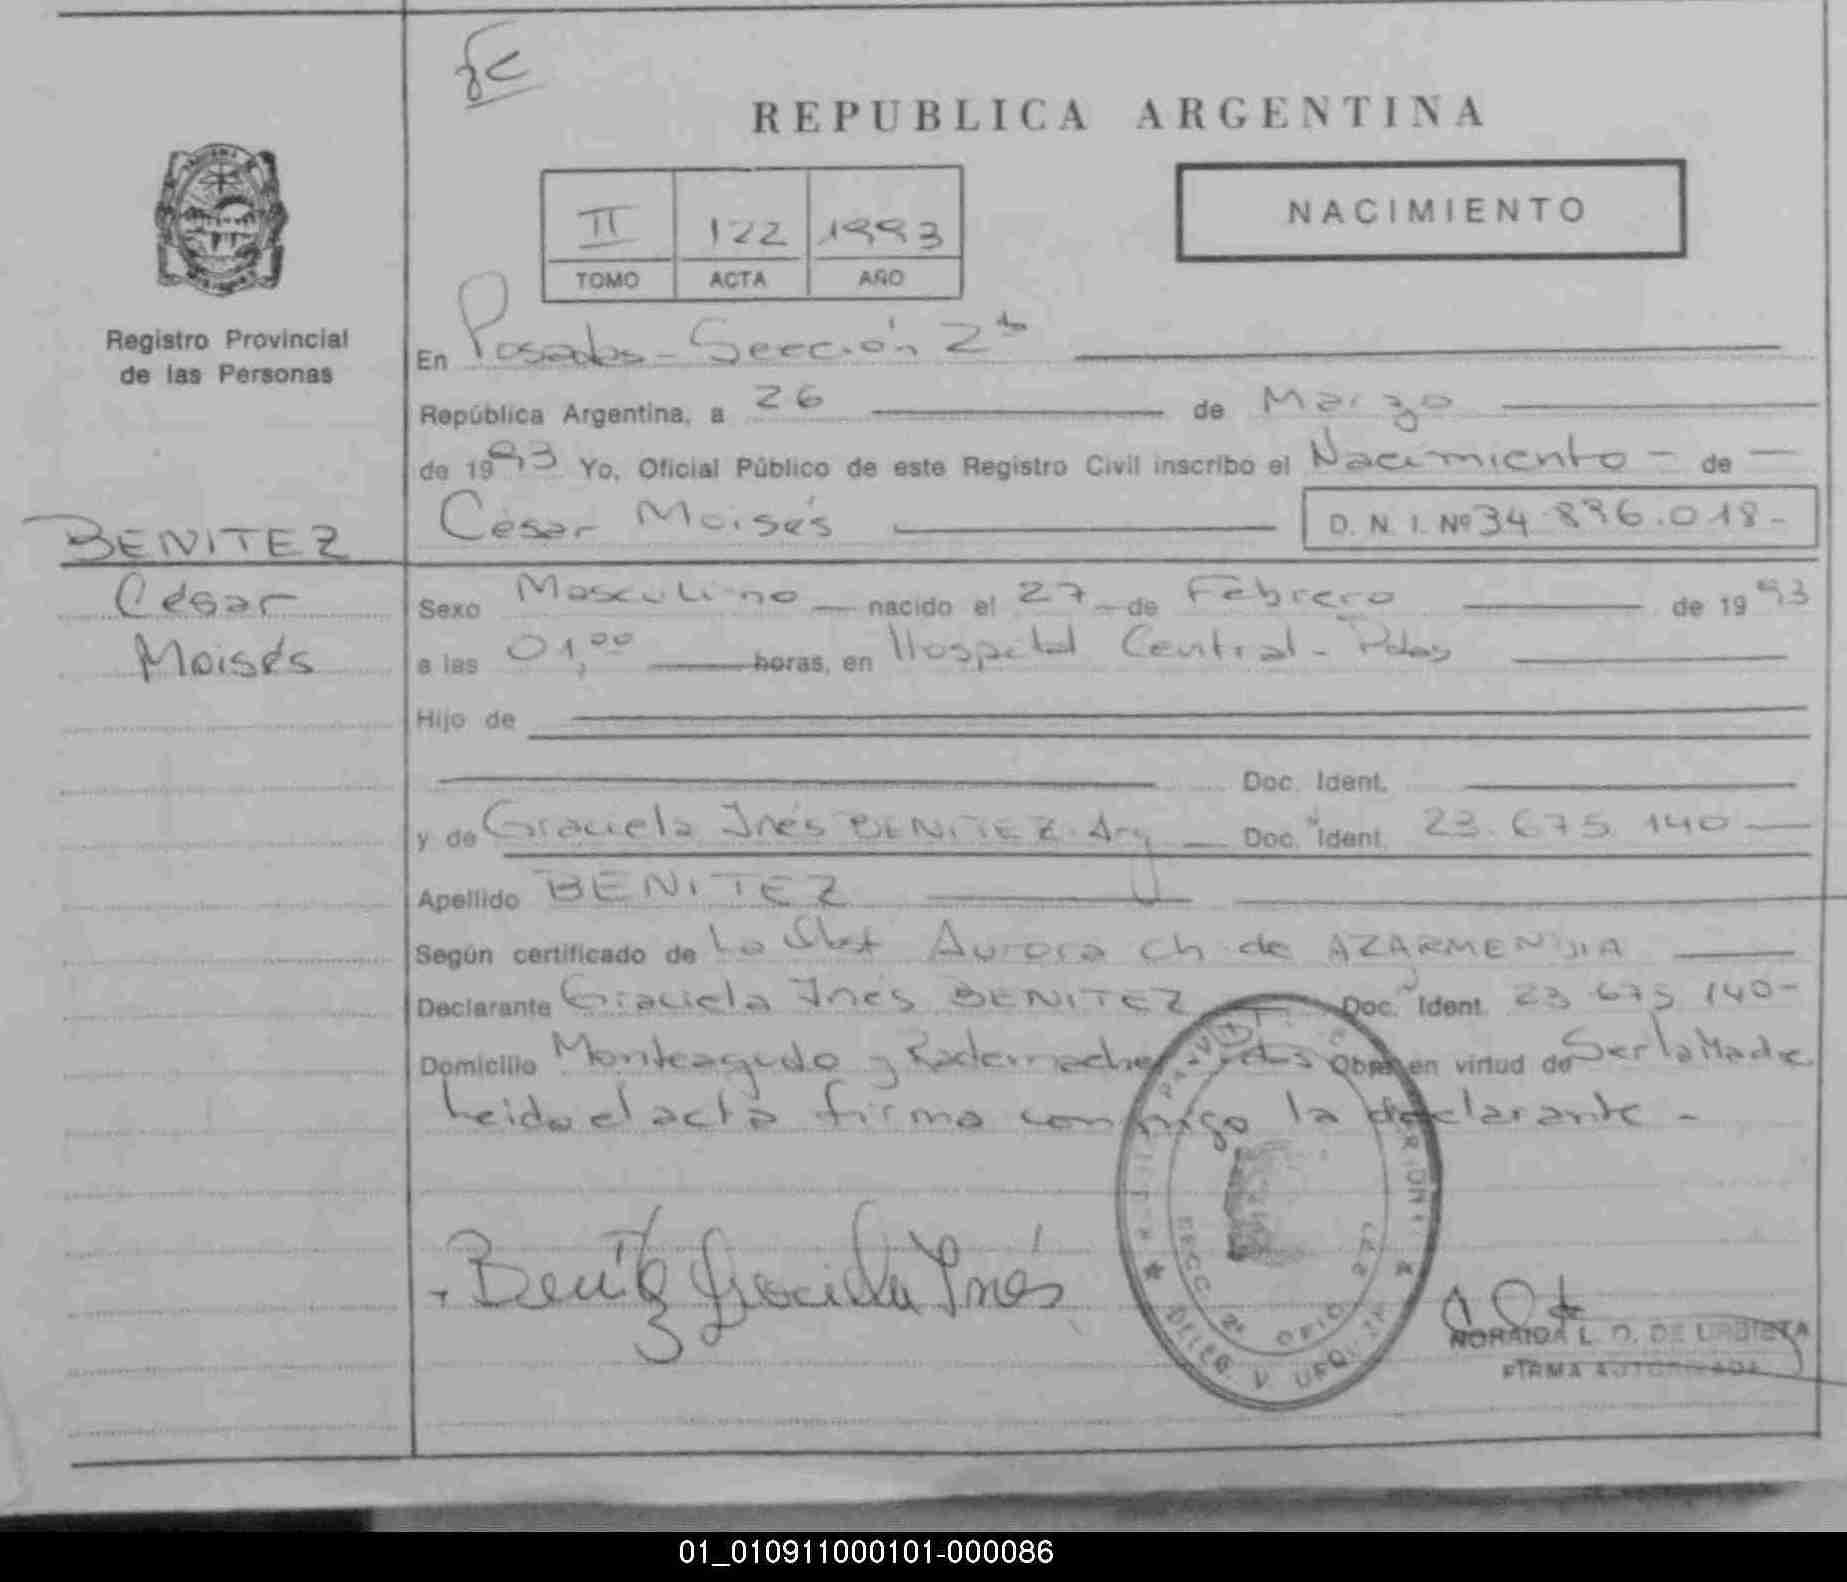 REPUBLICA ARGENTINA
NACIMIENTO
II 122 1993
TOMO ACTA AÑO
Registro Provincial
de las Personas
En Posadas - Sección 2ª
República Argentina, a 26 de Marzo
de 1993 Yo, Oficial Público de este Registro Civil inscribo el Nacimiento - de -
César Moisés D. N. I. Nº 34.896.018-
BENITEZ
César
Moisés
Sexo Masculino nacido el 27 de Febrero de 1993
a las 01,00 horas, en Hospital Central - Pdas
Hijo de
Doc. Ident.
y de Graciela Inés BENITEZ Arg Doc. Ident. 23.675.140
Apellido BENITEZ
Según certificado de La Aurora Ch de AZARMENDIA
Declarante Graciela Inés BENITEZ Doc. Ident. 23.675.140-
Domicilio Monteagudo y Rademacher Pdas Obra en virtud de Ser la Madre
Leida el acta firma conmigo la declarante -
Benitez Graciela Inés
SECC 2ª OFIC
DELEG. V. URQUIZA
NORAIDA L. O. DE URBIETA
FIRMA AUTORIZADA
01_010911000101-000086